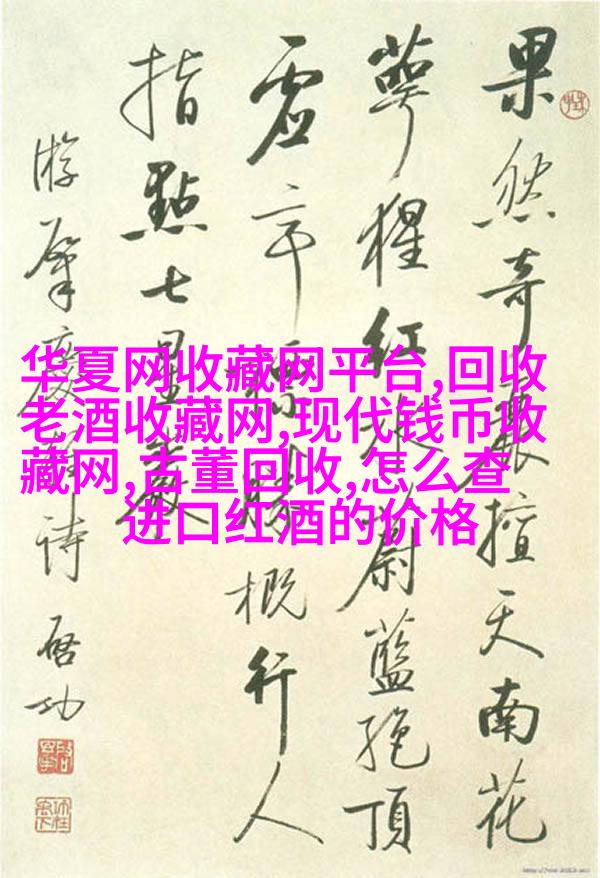 果然奇麗擅天南花
萼猩紅蔚藍絕頂
虛亭標勝概行人
指點七星巖
游肇慶詩 啓功
华夏网收藏网平台,回收
老酒收藏网,现代钱币收
藏网,古董回收,怎么查
进口红酒的价格